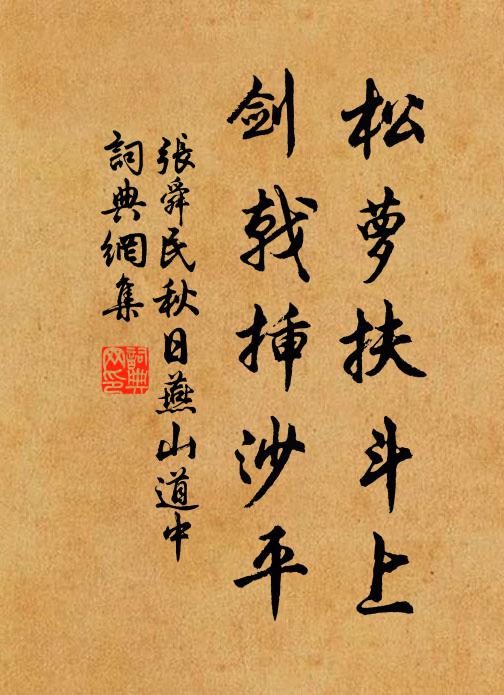 松萝扶斗上
剑戟插沙平
張舜民秋日燕山道中
詞典網集
詞典
网印